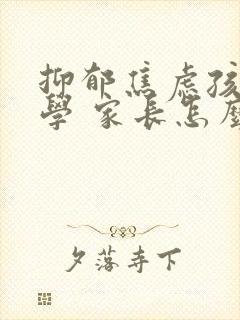 抑郁焦虑孩
學 家長怎麼
夕落寺下